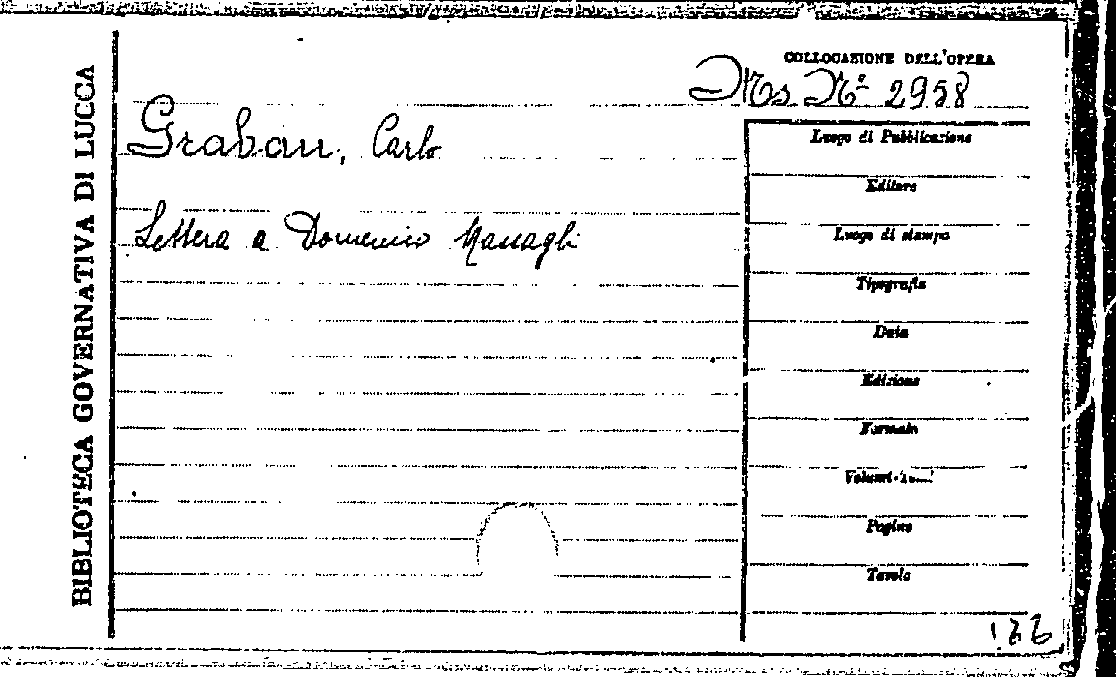 BIBLIOTECA GOVERNATIVA DI LUCCA
COLLOCAZIONE DELL'OPERA
Ms. N° 2958
Graban, Carlo
Lettera a Domenico Massagli
Luogo di Pubblicazione
Editore
Luogo di stampa
Tipografia
Data
Edizione
Formato
Volumi-
Pagine
Tavole